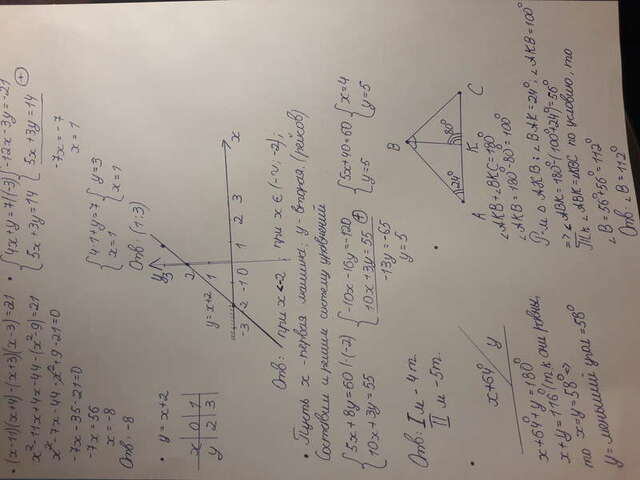 • (x-11)(x+4)-(x+3)(x-3)=21
x²-11x+4x-44-(x²-9)=21
x²-7x-44-x²+9-21=0
-7x-35-21=0
-7x=56
x=-8
Отв: -8
• {4x+y=7|(-3) {-12x-3y=-21
5x+3y=14 5x+3y=14 +
-7x=-7
x=1
{4·1+y=7 {y=3
x=1 x=1
Отв: (1;3)
• y=x+2
x 0 1
y 2 3
y
3
2
1
y=x+2
-3 -2 -1 0 1 2 3 x
Отв: при x<-2; при x∈(-∞;-2);
• Пусть x-первая машина; y-вторая. (рейсов)
Составим и решим систему уравнений
{5x+8y=60|·(-2) {-10x-16y=-120 {5x+40=60 {x=4
10x+3y=55 10x+3y=55 + y=5 y=5
-13y=-65
y=5
Отв: I м - 4т.
II м - 5т.
•
x+64° y
x+64°+y=180°
x+y=116° (т к они равны,
то x=y=58° =>
y=меньший угол=58°
•
B
24° 80°
A K C
∠AKB+∠BKC=180°
∠AKB=180°-80°=100°
Р-м △AKB: ∠BAK=24°; ∠AKB=100°
=> ∠ABK=180°-(100°+24°)=56°
Т.к ∠ABK=∠KBC по условию, то
∠B=56°+56°=112°
Отв: ∠B=112°